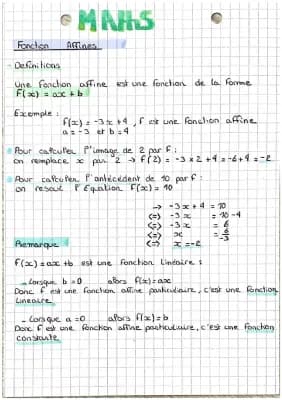 MAths
Fonction Affines
- Definitions
Une fonction affine est une fonction de la forme
f(x) = ax + b
Exemple :
f(x) = -3x + 4, f est une fonction affine
a = -3 et b = 4
Pour calculer l'image de 2 par f :
on remplace x par 2 → f(2) = -3 × 2 + 4 = -6 + 4 = -2
Pour calculer l'antécédent de 10 par f :
on resout l'Equation f(x) = 10
→ -3x + 4 = 10
(=) -3x = 10 - 4
(=) -3x = 6
(=) x = 6/-3
(=) x = -2
Remarque
f(x) = ax + b est une fonction linéaire :
- Lorsque b = 0 alors f(x) = ax
Donc f est une fonction affine particuliaire, c'est une fonction
lineaire
- Lorsque a = 0 alors f(x) = b
Donc f est une fonction affine particuliaire, c'est une fonction
constante